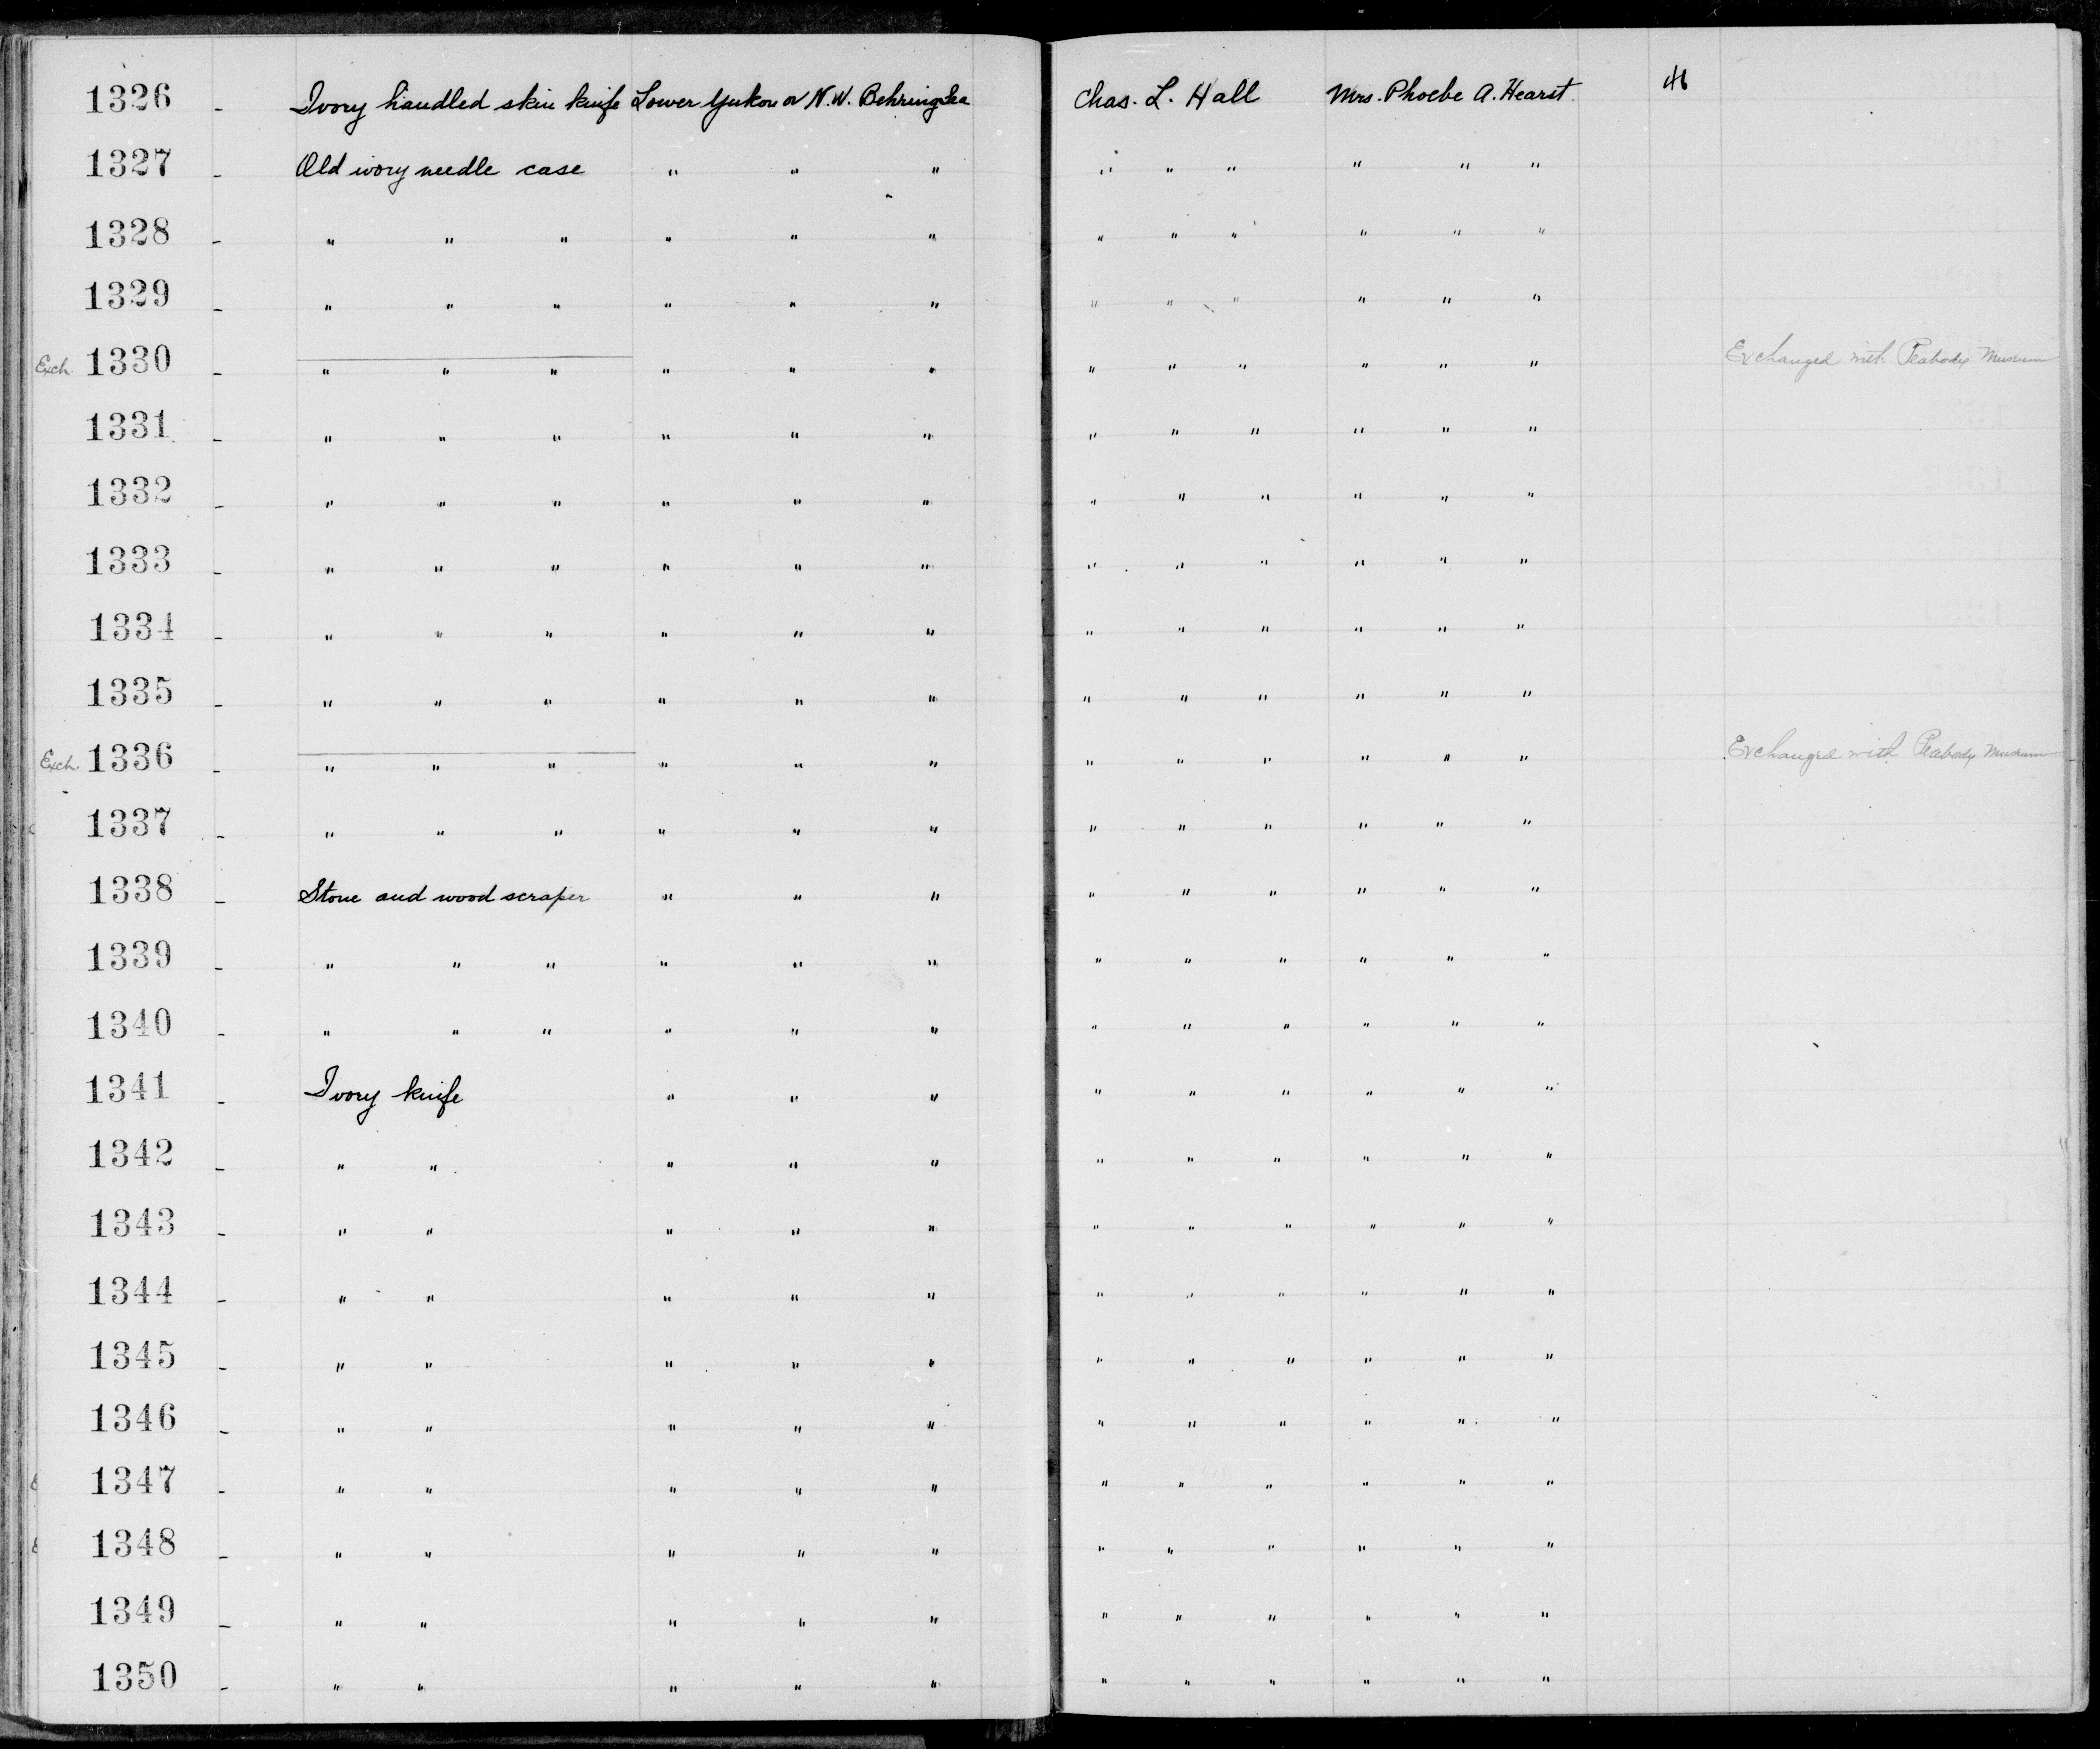 1326 - Ivory handled skin knife Lower Yukon or N.W. Behring Sea Chas. L. Hall Mrs. Phoebe A. Hearst 46
1327 - Old ivory needle case " " " " " " " " "
1328 - " " " " " " " " " " " "
1329 - " " " " " " " " " " " "
Exch. 1330 - " " " " " " " " " " " " Exchanged with Peabody Museum
1331 - " " " " " " " " " " " "
1332 - " " " " " " " " " " " "
1333 - " " " " " " " " " " " "
1334 - " " " " " " " " " " " "
1335 - " " " " " " " " " " " "
Exch. 1336 - " " " " " " " " " " " " Exchanged with Peabody Museum
1337 - " " " " " " " " " " " "
1338 - Stone and wood scraper " " " " " " " " "
1339 - " " " " " " " " " " " "
1340 - " " " " " " " " " " " "
1341 - Ivory knife " " " " " " " " "
1342 - " " " " " " " " " " "
1343 - " " " " " " " " " " "
1344 - " " " " " " " " " " "
1345 - " " " " " " " " " " "
1346 - " " " " " " " " " " "
1347 - " " " " " " " " " " "
1348 - " " " " " " " " " " "
1349 - " " " " " " " " " " "
1350 - " " " " " " " " " " "